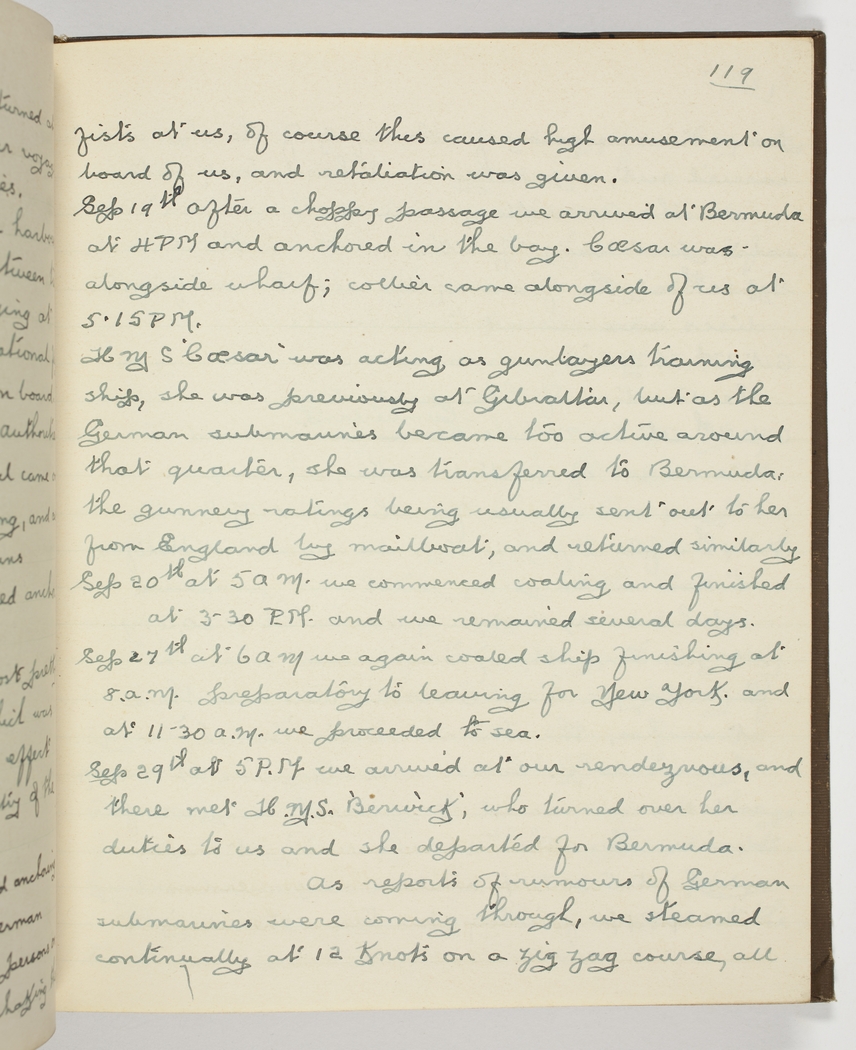 119
fists at us, of course this caused high amusement on
board of us, and retaliation was given.
Sep 19th after a choppy passage we arrived at Bermuda
at 4 PM and anchored in the bay. Cæsar was
alongside wharf; collier came alongside of us at
5.15 P.M.
H M S 'Cæsar' was acting as gunlayers training
ship, she was previously at Gibraltar, but as the
German submarines became too active around
that quarter, she was transferred to Bermuda.
the gunnery ratings being usually sent out to her
from England by mailboat, and returned similarly
Sep 20th at 5 a.m. we commenced coaling and finished
at 3-30 P.M. and we remained several days.
Sep 27th at 6 a m we again coaled ship finishing at
8.a.m. preparatory to leaving for New York. and
at 11-30 a.m. we proceeded to sea.
Sep 29th at 5 P.M we arrived at our rendezvous, and
there met H.M.S. 'Berwick', who turned over her
duties to us and she departed for Bermuda.
As reports of rumours of German
submarines were coming through, we steamed
continually at 12 Knots on a zig zag course, all
turned
ies.
harbo
tween
ing at
ational
n board
came
ng, and
effect
ty of the
anchoring
erman
persons